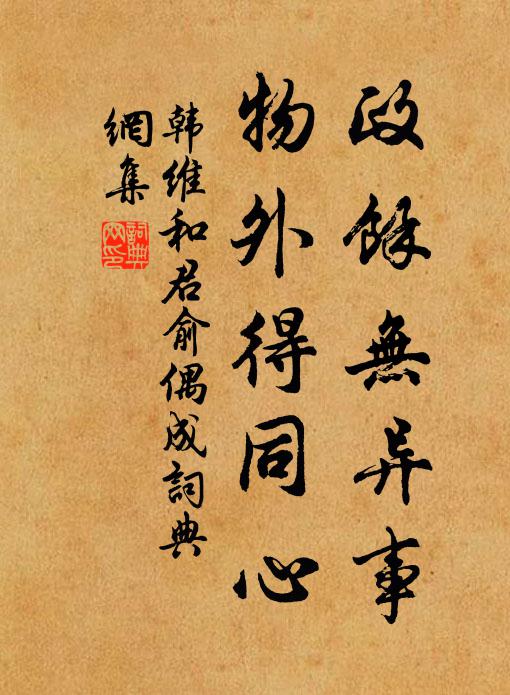 政餘無异事
物外得同心
韩維和君俞偶成詞典
網集
詞典網印